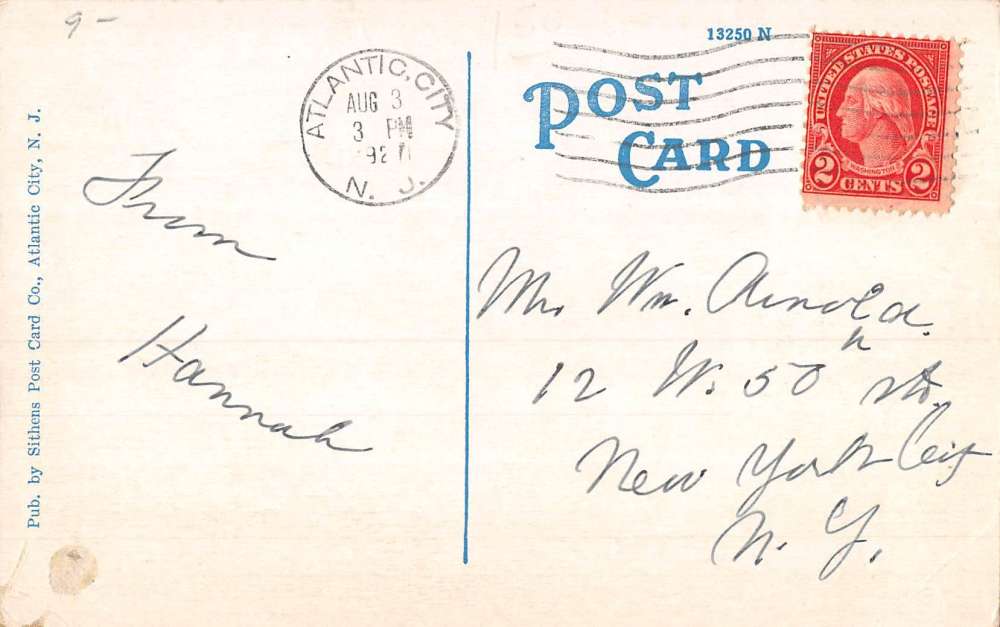 9-
13250 N
POST
CARD
ATLANTIC, CITY
AUG 3
3 PM
N. J.
UNITED STATES POSTAGE
WASHINGTON
2 CENTS 2
From
Hannah
Mr. Wm. Arnold.
12 W. 50 th St.
New York City
N. Y.
Pub. by Sithens Post Card Co., Atlantic City, N. J.